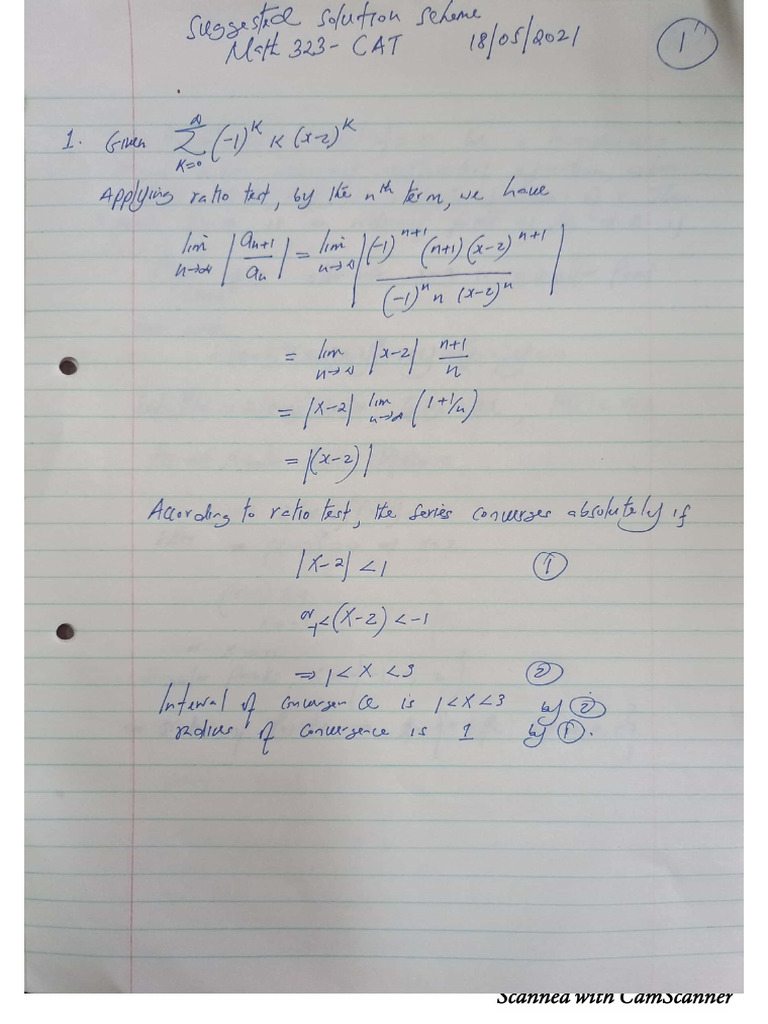 Suggested Solution Scheme
Math 323- CAT 18/05/2021 1
1. Given ∑_{K=0}^{∞} (-1)^K K (x-2)^K
Applying ratio test, by the nth term, we have
lim_{n→∞} |a_{n+1}/a_n| = lim_{n→∞} |(-1)^{n+1} (n+1) (x-2)^{n+1} / (-1)^n n (x-2)^n|
= lim_{n→∞} |x-2| (n+1)/n
= |x-2| lim_{n→∞} (1+1/n)
= |(x-2)|
According to ratio test, the series converges absolutely if
|x-2| < 1 ①
or +1 < (x-2) < -1
⇒ 1 < x < 3 ②
Interval of convergence is 1 < x < 3 by ②
radius of convergence is 1 by ①.
Scanned with CamScanner